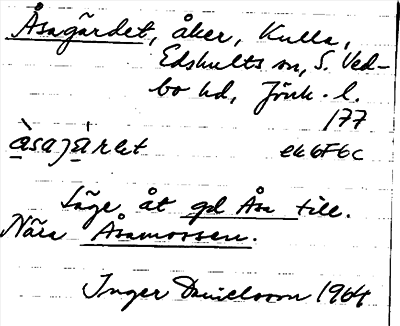 Åsagärdet, åker, Kulla,
Edshults sn, S. Ved-
bo hd, Jönk. l.
177
àsajàrlet ek 6F6c
Läge åt gd Åsa till.
Nära Åsamossen.
Inger Danielsson 1964